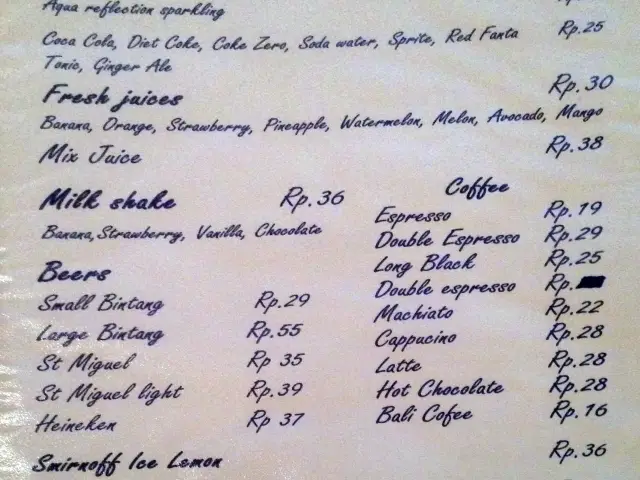 Aqua reflection sparkling
Coca Cola, Diet Coke, Coke Zero, Soda water, Sprite, Red Fanta Rp.25
Tonic, Ginger Ale
Fresh juices Rp.30
Banana, Orange, Strawberry, Pineapple, Watermelon, Melon, Avocado, Mango
Mix Juice Rp.38
Milk shake Rp.36
Banana, Strawberry, Vanilla, Chocolate
Beers
Small Bintang Rp.29
Large Bintang Rp.55
St Miguel Rp 35
St Miguel light Rp.39
Heineken Rp 37
Coffee
Espresso Rp.19
Double Espresso Rp.29
Long Black Rp.25
Double espresso Rp.
Machiato Rp.22
Cappucino Rp.28
Latte Rp.28
Hot Chocolate Rp.28
Bali Cofee Rp.16
Smirnoff Ice Lemon Rp.36